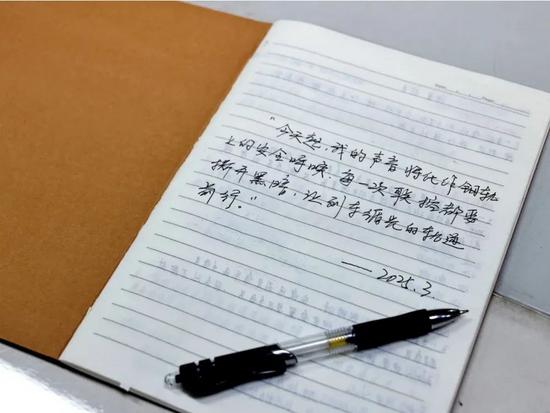 “今天起，我的声音将化作钢轨
上的安全呼唤，每一次联控都要
撕开黑暗，让列车循光的轨迹
前行。”
——2025.3.